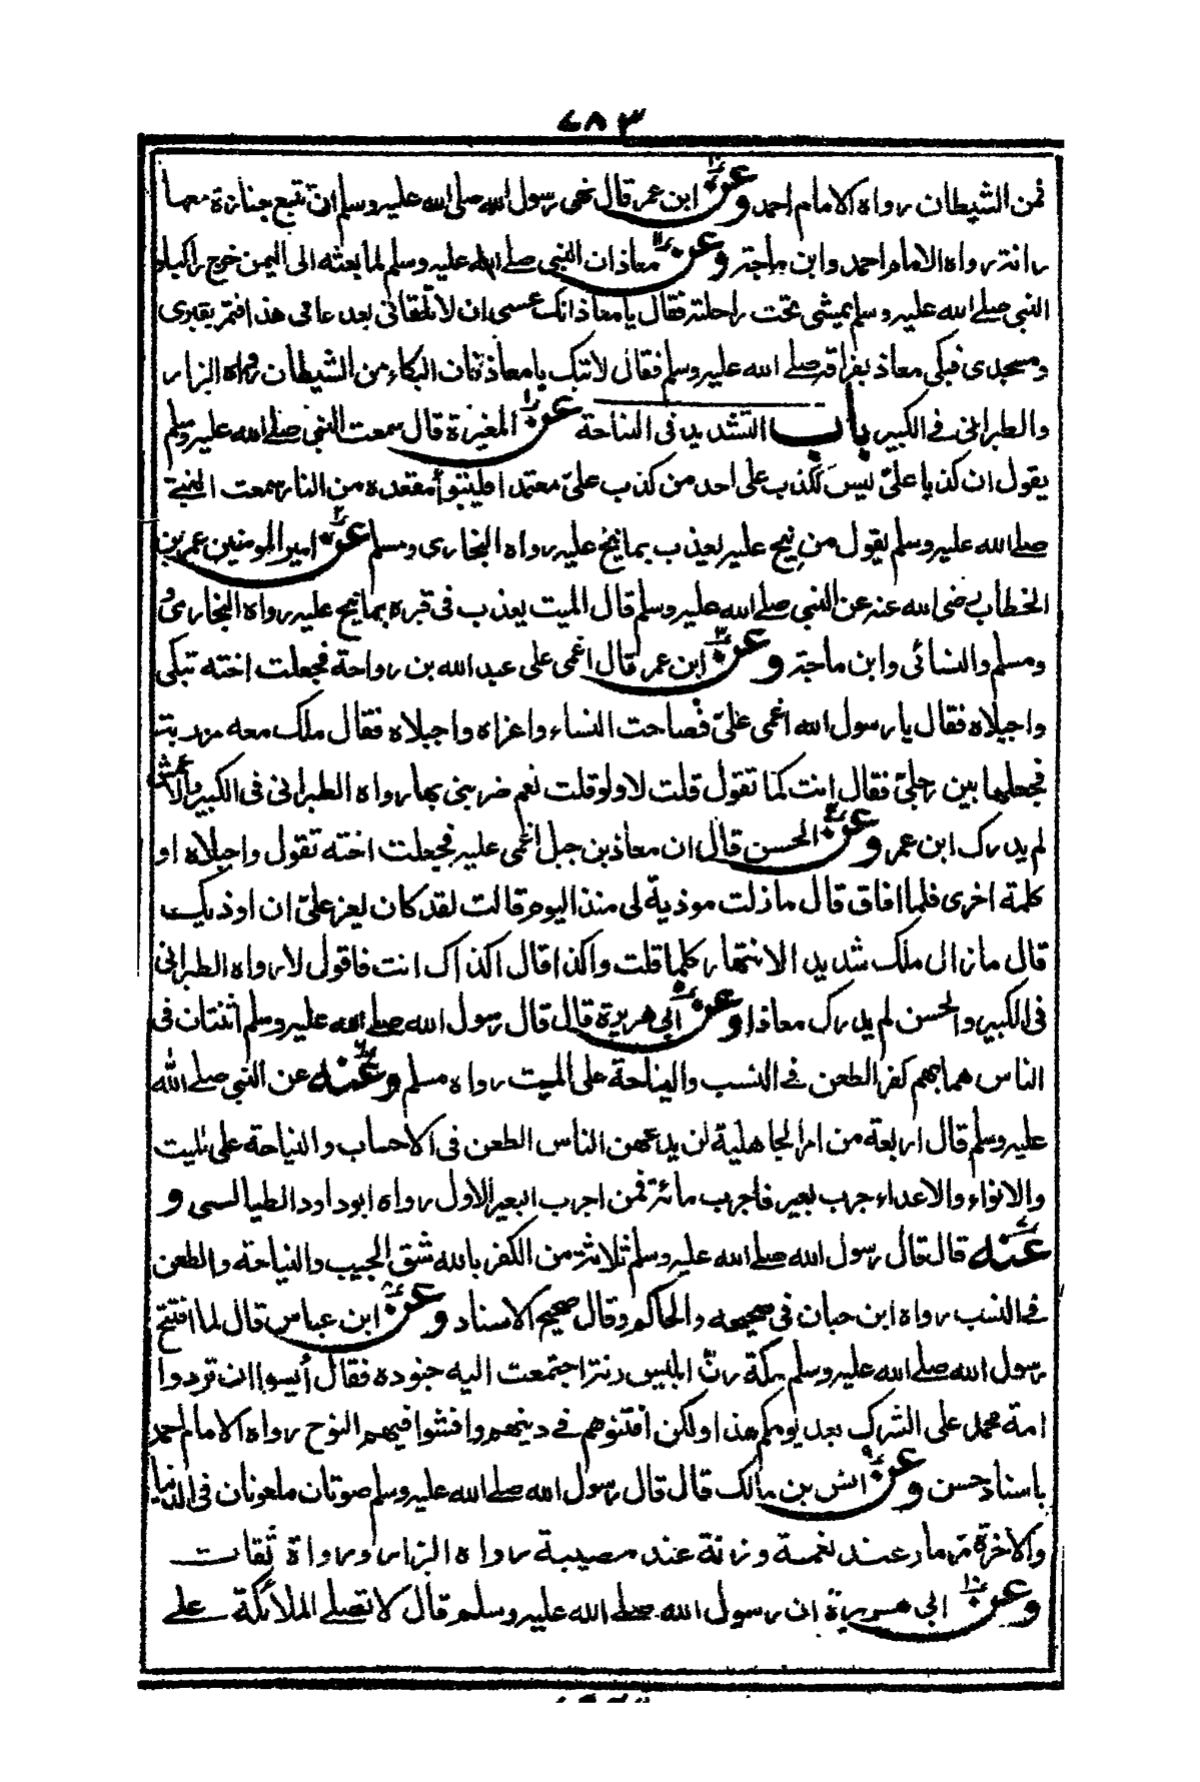 ٢٨٣
فمن الشيطان رواه الامام احمد وعن ابن عمر قال نهى رسول الله صلى الله عليه وسلم ان تتبع جنازة معها
رانة رواه الامام احمد وابن ماجة وعن معاذ ان النبي صلى الله عليه وسلم لما بعثه الى اليمن خرج راكبا و
النبي صلى الله عليه وسلم يمشي تحت راحلته فقال يا معاذ انك عسى ان لا تلقاني بعد عامي هذا فتمر بقبري
ومسجدي فبكى معاذ بفراقه صلى الله عليه وسلم فقال لا تبك يا معاذ فان البكاء من الشيطان رواه البزار
والطبراني في الكبير باب التشديد في النياحة عن المغيرة قال سمعت النبي صلى الله عليه وسلم
يقول ان كذبا علي ليس ككذب على احد من كذب علي متعمدا فليتبوأ مقعده من النار سمعت النبي
صلى الله عليه وسلم يقول من نيح عليه يعذب بما نيح عليه رواه البخاري ومسلم عن امير المومنين عمر بن
الخطاب رضي الله عنه عن النبي صلى الله عليه وسلم قال الميت يعذب في قبره بما نيح عليه رواه البخاري و
ومسلم والنسائي وابن ماجة وعن ابن عمر قال اغمي على عبد الله بن رواحة فجعلت اخته تبكي
واجبلاه فقال يا رسول الله اغمي علي فصاحت النساء واعزاه واجبلاه فقال ملك معه مرزبة
فجعلها بين رجلي فقال انت كما تقول قلت لا ولو قلت نعم ضربني بها رواه الطبراني في الكبير والاعمش
لم يدرك ابن عمر وعن الحسن قال ان معاذ بن جبل اغمي عليه فجعلت اخته تقول واجبلاه او
كلمة اخرى فلما افاق قال ما زلت موذية لي منذ اليوم قالت لقد كان يعز علي ان اوذيك
قال ما زال ملك شديد الانتهار كلما قلت واكذا قال اكذاك انت فاقول لا رواه الطبراني
في الكبير والحسن لم يدرك معاذا وعن ابي هريرة قال قال رسول الله صلى الله عليه وسلم اثنتان في
الناس هما بهم كفر الطعن في النسب والنياحة على الميت رواه مسلم وعنه عن النبي صلى الله
عليه وسلم قال اربعة من امر الجاهلية لن يدعهن الناس الطعن في الاحساب والنياحة على الميت
والانواء والاعداء جرب بعير فاجرب مائة فمن اجرب البعير الاول رواه ابو داود الطيالسي و
عنه قال قال رسول الله صلى الله عليه وسلم ثلاثة من الكفر بالله شق الجيب والنياحة والطعن
في النسب رواه ابن حبان في صحيحه والحاكم وقال صحيح الاسناد وعن ابن عباس قال لما افتتح
رسول الله صلى الله عليه وسلم مكة رن ابليس رنة اجتمعت اليه جنوده فقال أيسوا ان تردوا
امة محمد على الشرك بعد يومكم هذا ولكن افتنوهم في دينهم وافشوا فيهم النوح رواه الامام احمد
باسناد حسن وعن انس بن مالك قال قال رسول الله صلى الله عليه وسلم صوتان ملعونان في الدنيا
والاخرة مزمار عند نغمة ورنة عند مصيبة رواه البزار ورواة ثقات
وعن ابي هريرة ان رسول الله صلى الله عليه وسلم قال لا تصلى الملائكة على